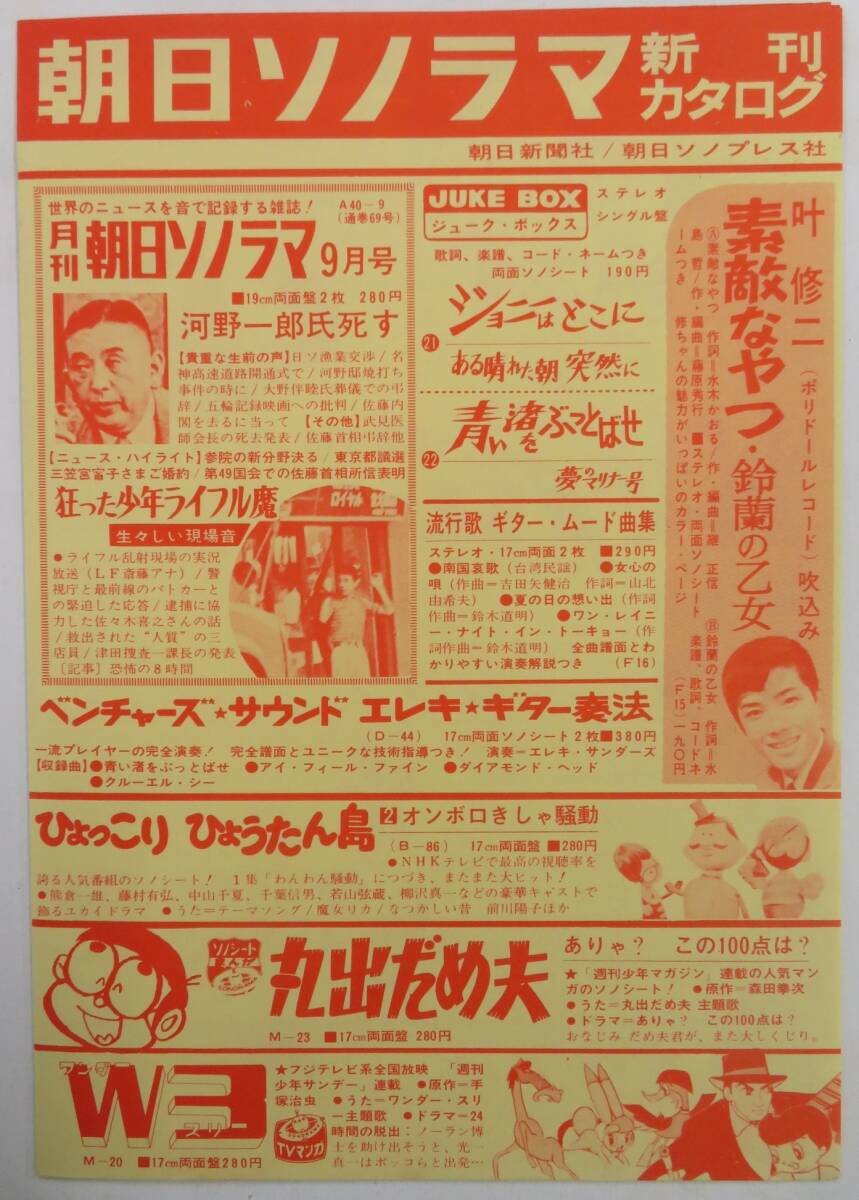 朝日ソノラマ
新刊
カタログ
朝日新聞社/朝日ソノプレス社
世界のニュースを音で記録する雑誌!
A40-9
(通巻69号)
月刊 朝日ソノラマ 9月号
■19cm両面盤2枚 280円
河野一郎氏死す
【貴重な生前の声】日ソ漁業交渉/名
神高速道路開通式で/河野邸焼打ち
事件の時に/大野伴睦氏葬儀での弔
辞/五輪記録映画への批判/佐藤内
閣を去るに当って 【その他】武見医
師会長の死去発表/佐藤首相弔辞他
【ニュース・ハイライト】参院の新分野決る/東京都議選
三笠宮甯子さまご婚約/第49国会での佐藤首相所信表明
狂った少年ライフル魔
生々しい現場音
●ライフル乱射現場の実況
放送(LF斎藤アナ)/警
視庁と最前線のパトカーと
の緊迫した応答/逮捕に協
力した佐々木喜之さんの話
/救出された“人質”の三
店員/津田捜査一課長の発表
〔記事〕恐怖の8時間
JUKE BOX
ジューク・ボックス
ステレオ
シングル盤
歌詞、楽譜、コード・ネームつき
両面ソノシート 190円
21
ジョニーはどこに
ある晴れた朝 突然に
22
青い渚をぶっとばせ
夢のマリナー号
流行歌 ギター・ムード曲集
ステレオ・17cm両面2枚 ■290円
●南国哀歌(台湾民謡) ●女心の
唄(作曲=吉田矢健治 作詞=山北
由希夫) ●夏の日の想い出(作詞
作曲=鈴木道明) ●ワン・レイニ
ー・ナイト・イン・トーキョー(作
詞作曲=鈴木道明) 全曲譜面とわ
かりやすい演奏解説つき (F16)
叶 修二(ポリドールレコード)吹込み
素敵なやつ・鈴蘭の乙女
Ⓐ素敵なやつ 作詞=水木かおる/作・編曲=継 正信 Ⓑ鈴蘭の乙女 作詞=水
島 哲/作・編曲=藤原秀行 ■ステレオ・両面ソノシート 楽譜、歌詞、コードネ
ームつき 修ちゃんの魅力がいっぱいのカラー・ページ (F15)一九〇円
ベンチャーズ★サウンド エレキ★ギター奏法
(D-44) 17cm両面ソノシート2枚■380円
一流プレイヤーの完全演奏! 完全譜面とユニークな技術指導つき! 演奏=エレキ・サンダーズ
【収録曲】●青い渚をぶっとばせ ●アイ・フィール・ファイン ●ダイアモンド・ヘッド
●クルーエル・シー
ひょっこり ひょうたん島 2オンボロきしゃ騒動
(B-86) 17cm両面盤 ■280円
●NHKテレビで最高の視聴率を
誇る人気番組のソノシート! 1集「わんわん騒動」につづき、またまた大ヒット!
●熊倉一雄、藤村有弘、中山千夏、千葉信男、若山弦蔵、柳沢真一などの豪華キャストで
飾るユカイドラマ ●うた=テーマソング/魔女リカ/なつかしい昔 前川陽子ほか
ソノシート
まんが
丸出だめ夫
M-23 ■17cm両面盤 280円
ありゃ? この100点は?
★「週刊少年マガジン」連載の人気マン
ガのソノシート! ●原作=森田拳次
●うた=丸出だめ夫 主題歌
●ドラマ=ありゃ? この100点は?
おなじみ だめ夫君が、また大しくじり。
ワンダー
W3
スリー
M-20 ■17cm両面盤280円
★フジテレビ系全国放映 「週刊
少年サンデー」連載 ●原作=手
塚治虫 ●うた=ワンダー・スリ
ー主題歌 ●ドラマ=24
時間の脱出:ノーラン博
士を助け出そうと、光一
真一はボッコらと出発…
TVマンガ